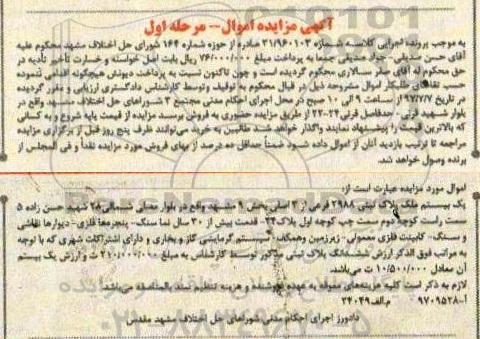 آگهی مزایده اموال-- مرحله اول
به موجب پرونده اجرایی کلاسه شماره ۳۱/۹۶۰۱۰۳ صادره از حوزه شماره ۱۶۴ شورای حل اختلاف مشهد محکوم علیه
آقای حسن صدیقی- جواد صدیقی جمعا به پرداخت مبلغ ۷۶/۰۰۰/۰۰۰ ریال بابت اصل خواسته و خسارت تأخیر تأدیه در
حق محکوم له آقای صفر بسالاری محکوم گردیده است و چون تاکنون نسبت به پرداخت دیونش هیچگونه اقدامی ننموده
حسب تقاضای طلبکار اموال مشروحه ذیل در قبال محکوم به توقیف و توسط کارشناس دادگستری ارزیابی و مقرر گردیده
در تاریخ ۹۷/۷/۷ از ساعت ۹ الی ۱۰ صبح در محل اجرای احکام مدنی مجتمع ۳ شوراهای حل اختلاف مشهد واقع در
بلوار شهید قرنی- حدفاصل قرنی ۲۹-۲۳ از طریق مزایده حضوری به فروش برسد مزایده از قیمت پایه شروع و به کسانی
که بالاترین قیمت را پیشنهاد نمایند واگذار خواهد شد طالبین به خرید می‌توانند ظرف پنج روز قبل از برگزاری مزایده
مراجعه تا ترتیب بازدید آنان از اموال داده شود ضمناً حداقل ده درصد از بهای فروش مورد مزایده نقداً و فی المجلس از
برنده وصول خواهد شد.
اموال مورد مزایده عبارت است از:
یک بیستم ملک پلاک ثبتی ۲۹۸۸ فرعی از ۳ اصلی بخش ۹ مشهد واقع در بلوار معلی شمالی ۲۸ شهید حسن زاده ۵
سمت راست کوچه دوم سمت چپ کوچه اول پلاک ۳۴- قدمت بیش از ۳۰ سال نما سنگ- پنجره‌ها فلزی- دیوارها نقاشی
و سنگ- کابینت فلزی معمولی- زیرزمین وهمکف- سیستم گرمایشی گاز و بخاری و دارای اشتراکات شهری که با توجه
به مراتب فوق الذکر ارزش ششدانگ پلاک ثبتی مذکور توسط کارشناس به مبلغ ۲۱۰/۰۰۰/۰۰۰ ت و ارزش یک بیستم
آن معادل ۱۰/۵۰۰/۰۰۰ ت می‌باشد.
لازم به ذکر است کلیه هزینه‌های معوقه به عهده فروشنده و هزینه تنظیم سند بالمناصفه می‌باشد.
آ-۹۷۰۹۵۲۸ م.الف ۲۴۰۴۹
دادورز اجرای احکام مدنی شوراهای حل اختلاف مشهد مقدس